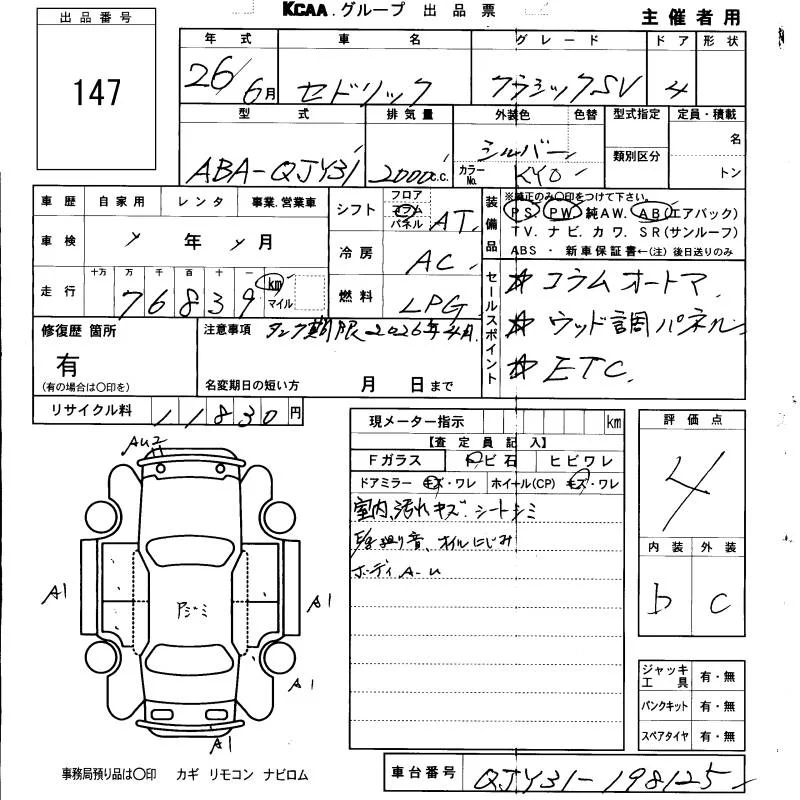 KCAA.グループ 出品票
主催者用
出品番号
147
年式 車名 グレード ドア 形状
26/6月 セドリック クラシックSV 4
型式 排気量 外装色 色替 型式指定 定員・積載
ABA-QJY31 2000c.c. シルバー カラーNo. KY0 類別区分 名
トン
車歴 自家用 レンタ 事業.営業車
車検 年 月
走行 十万 万 千 百 十 一
76839 km マイル
シフト フロア コラム パネル AT
冷房 AC
燃料 LPG
装備品 ※純正のみ〇印をつけて下さい。
PS PW 純AW. AB(エアバック)
TV. ナビ. カワ. SR(サンルーフ)
ABS ・ 新車保証書←(注)後日送りのみ
セールスポイント
☆ コラムオートマ
☆ ウッド調パネル
☆ ETC.
修復歴 箇所
有
(有の場合は〇印を)
注意事項 タンク期限2026年4月
名変期日の短い方 月 日まで
リサイクル料 11830円
現メーター指示 km
【査定員記入】
Fガラス トビ石 ヒビワレ
ドアミラー キズ・ワレ ホイール(CP) キズ・ワレ
室内、汚れキズ.シートシミ
音、オイルにじみ
ボディ A-U
評価点
4
内装 外装
b C
AU2
A1
A1
A1
A1
ジャッキ工具 有・無
パンクキット 有・無
スペアタイヤ 有・無
事務局預り品は〇印 カギ リモコン ナビロム
車台番号 QJY31-198125